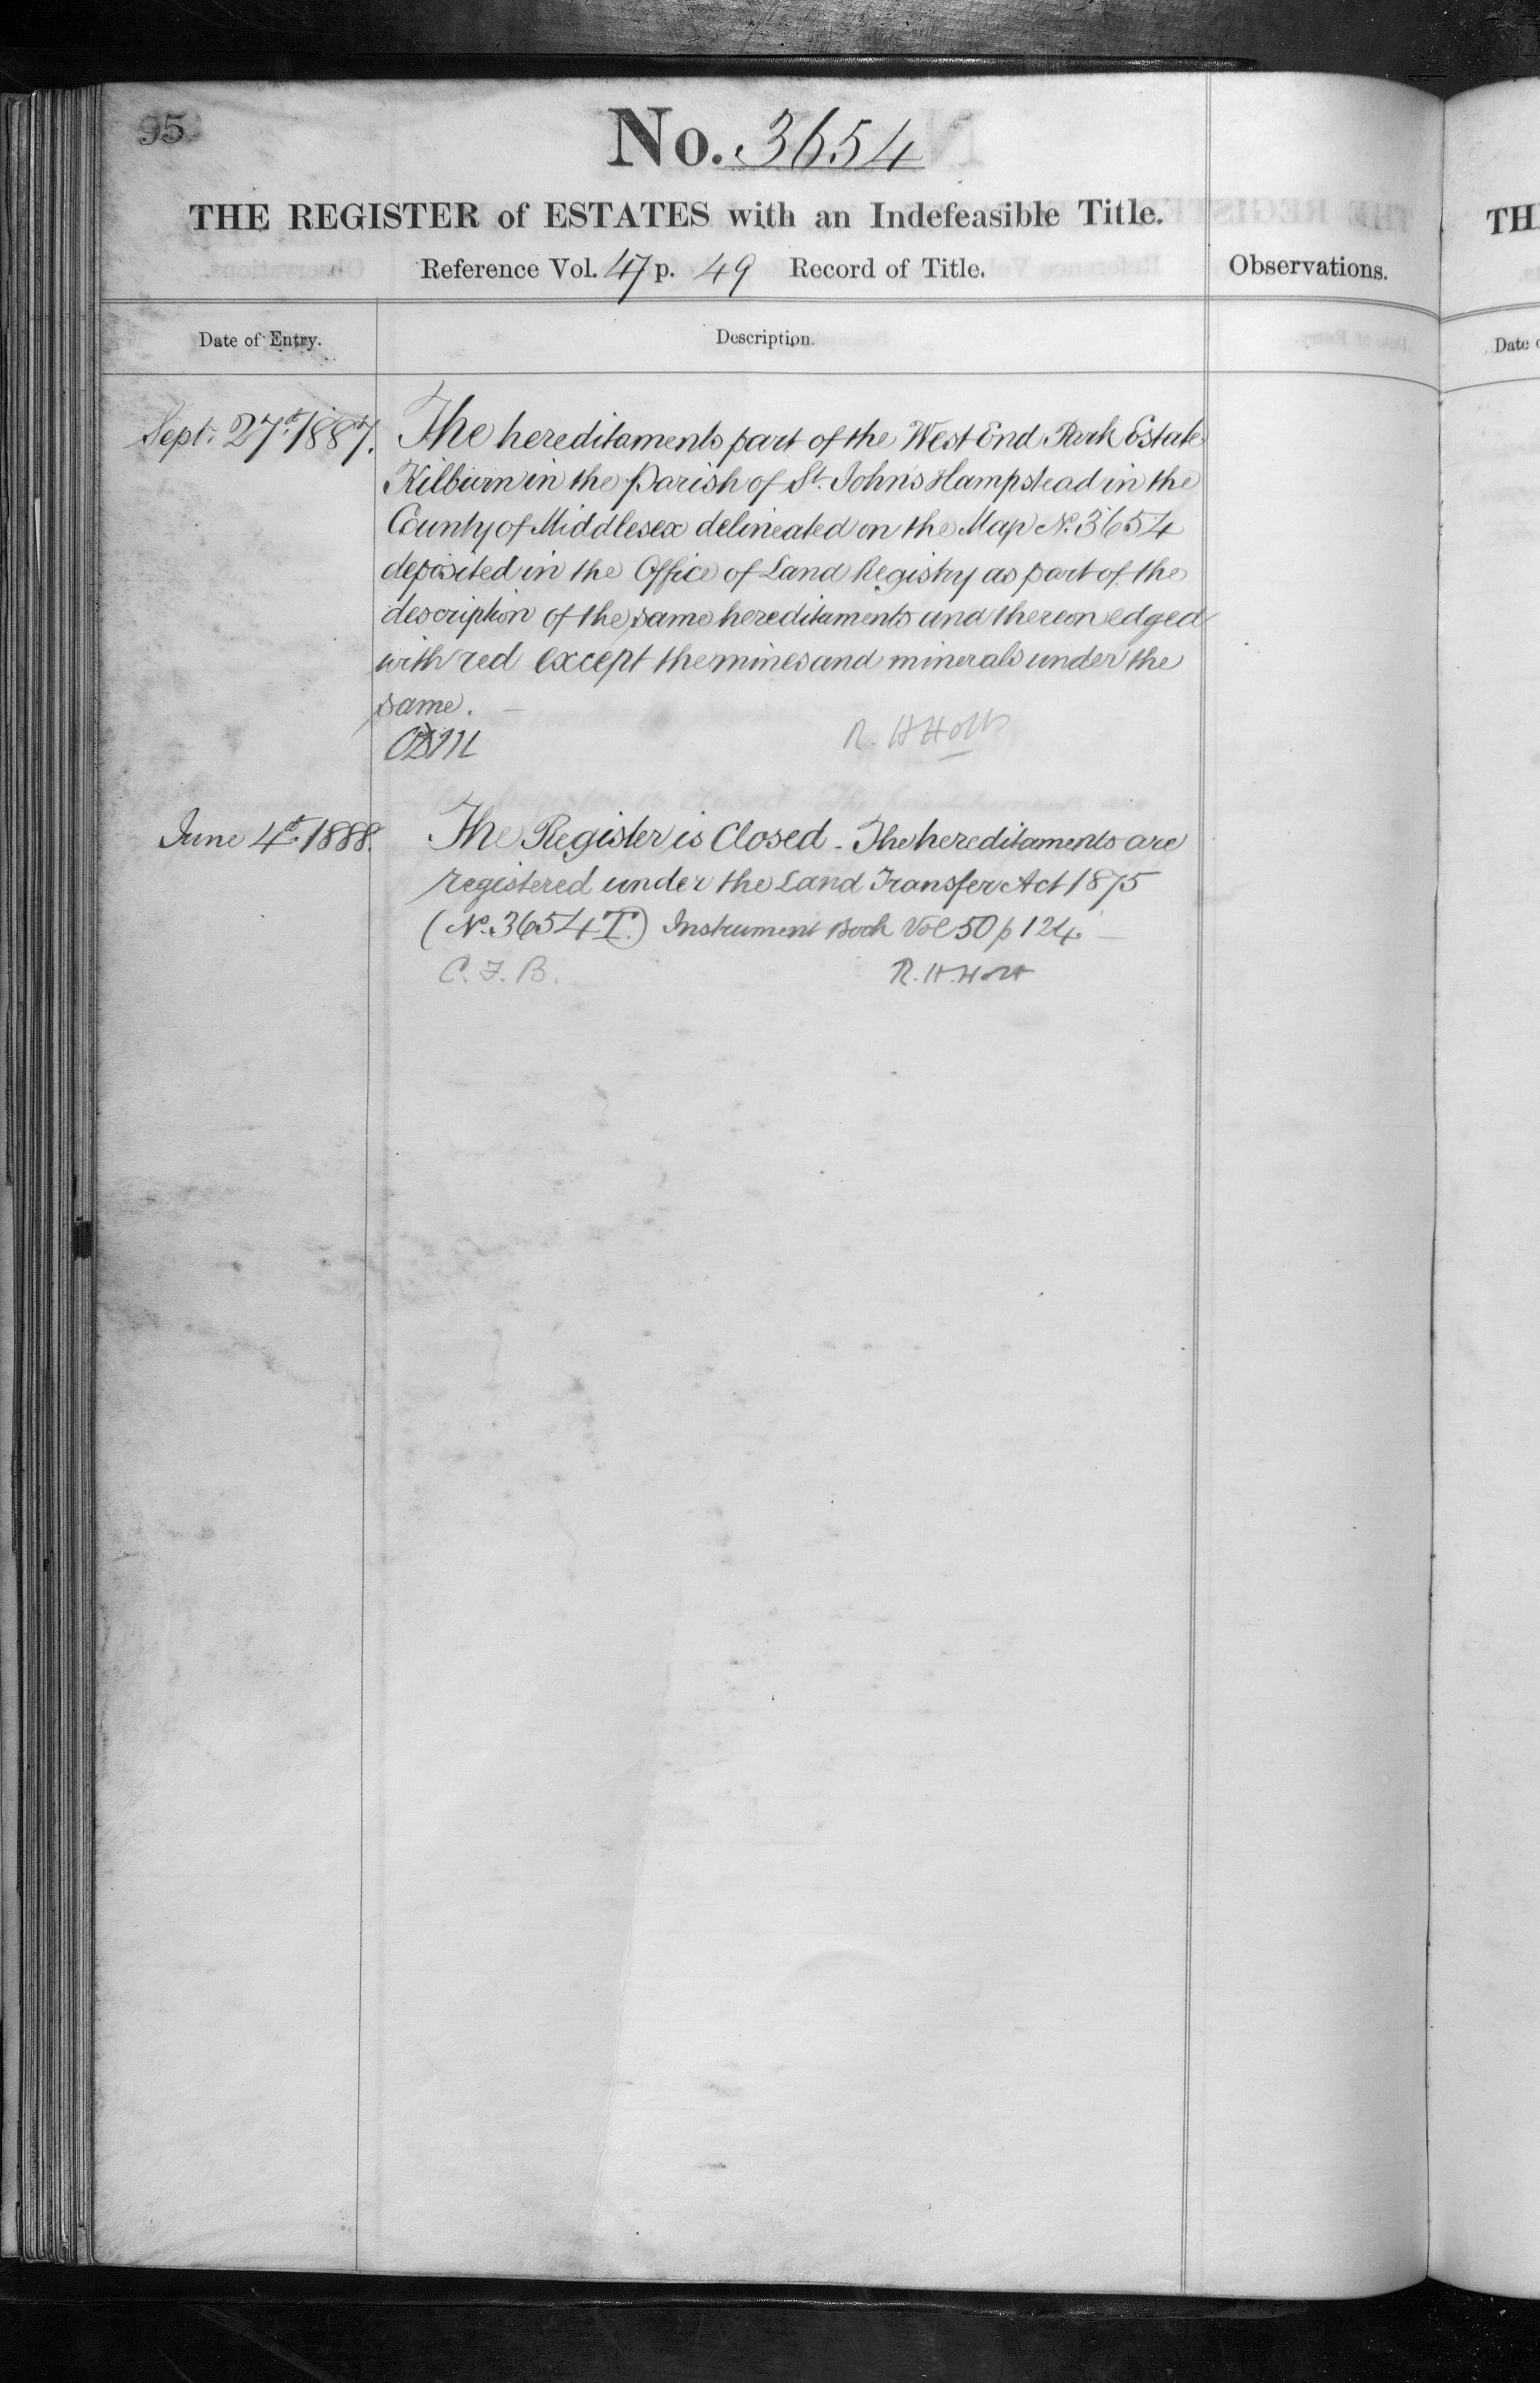 95
No. 3654
THE REGISTER of ESTATES with an Indefeasible Title.
Reference Vol. 47 p. 49 Record of Title.
Observations.
Date of Entry.
Description.
Sept. 27th 1887.
The hereditaments part of the West End Park Estate
Kilburn in the Parish of St. John's Hampstead in the
County of Middlesex delineated on the Map No. 3654
deposited in the Office of Land Registry as part of the
description of the same hereditaments and thereon edged
with red except the mines and minerals under the
same. –
R. H Holt
June 4th 1888.
The Register is Closed - The hereditaments are
registered under the Land Transfer Act 1875
(No. 3654 T.) Instrument Book Vol 50 p 124 –
C. F. B.
R. H. Holt
TH
Date